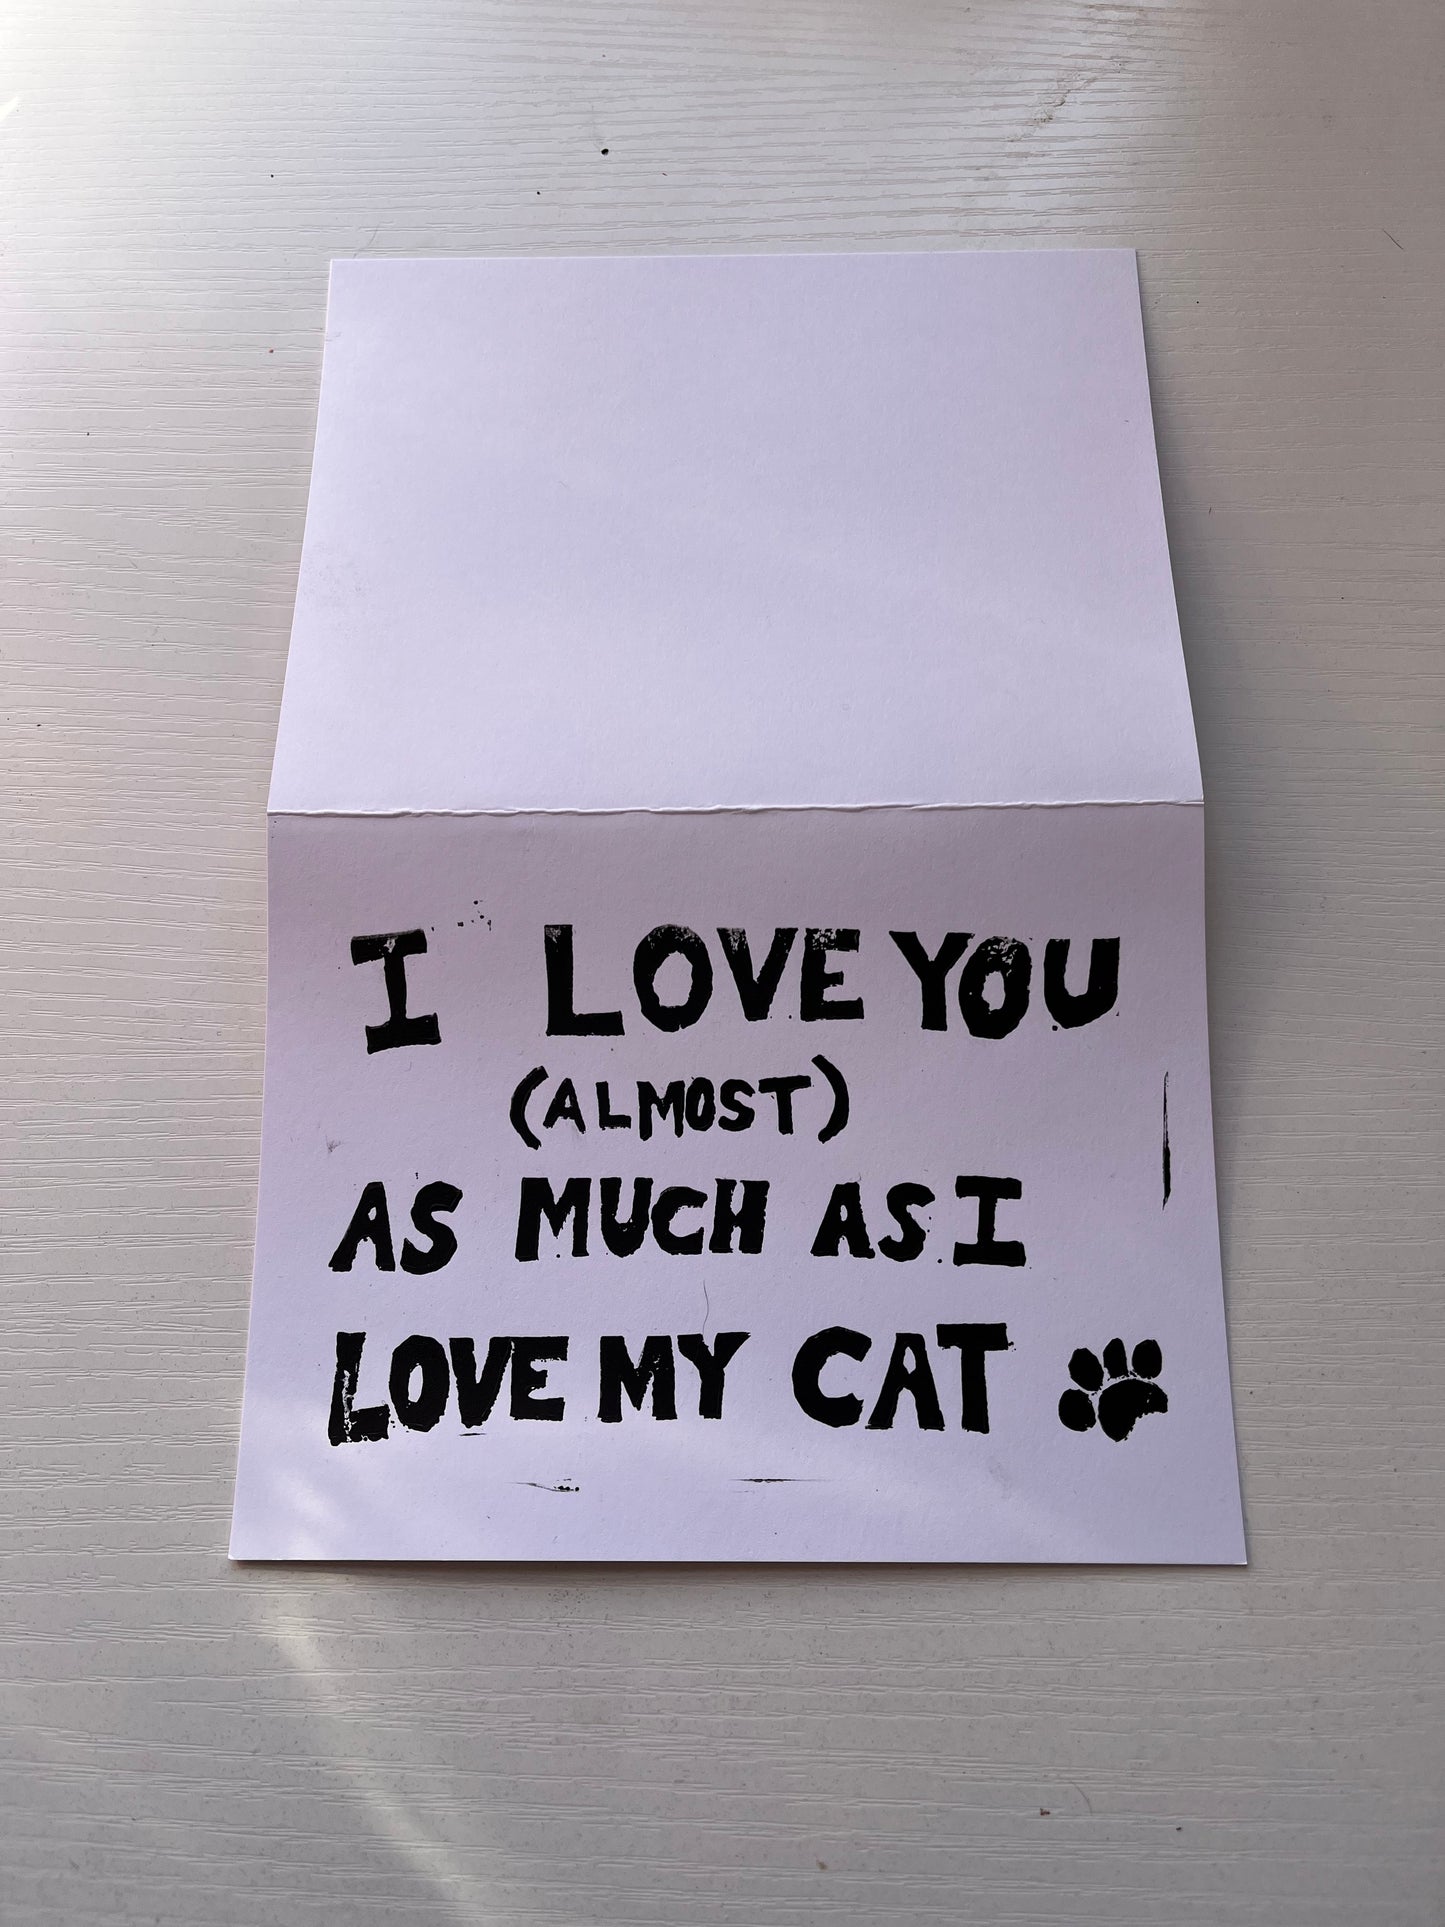 I LOVE YOU
(ALMOST)
AS MUCH AS I
LOVE MY CAT